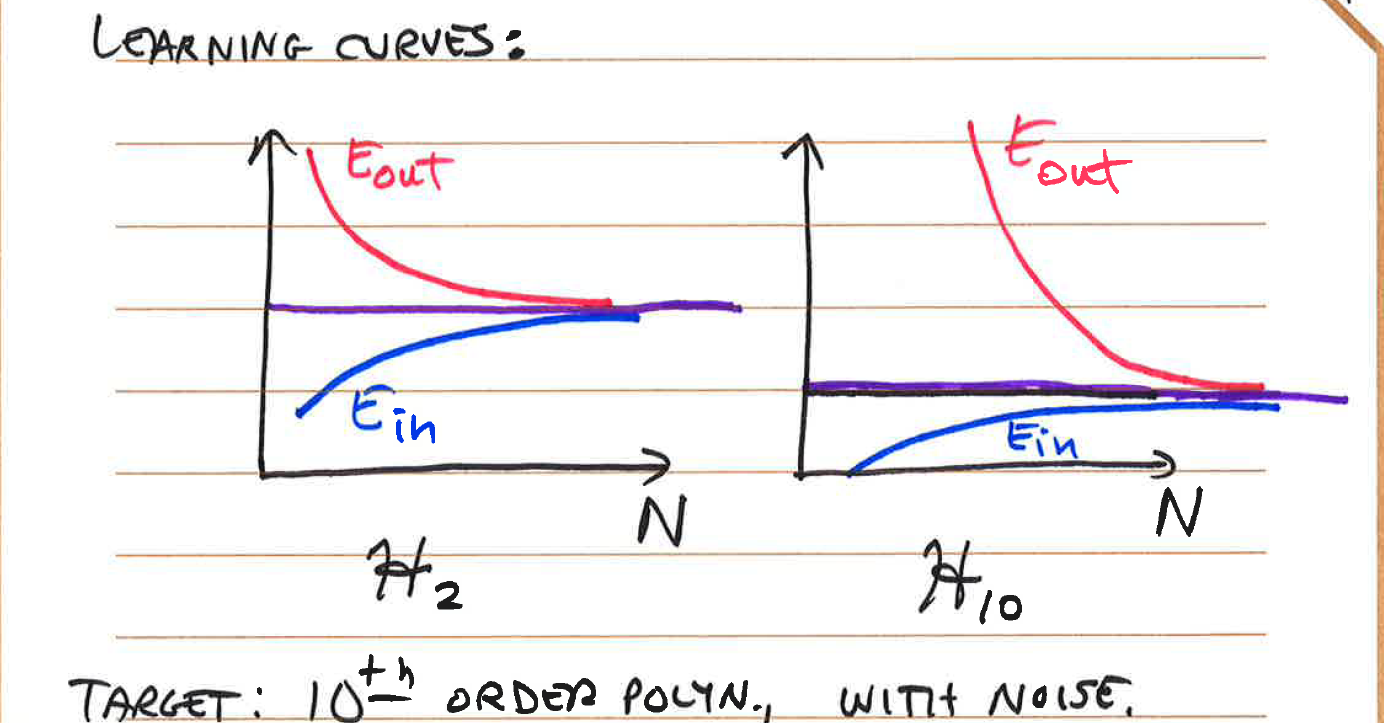 LEARNING CURVES:
Eout Eout
Ein Ein
N N
H2 H10
TARGET: 10th ORDER POLYN., WITH NOISE.